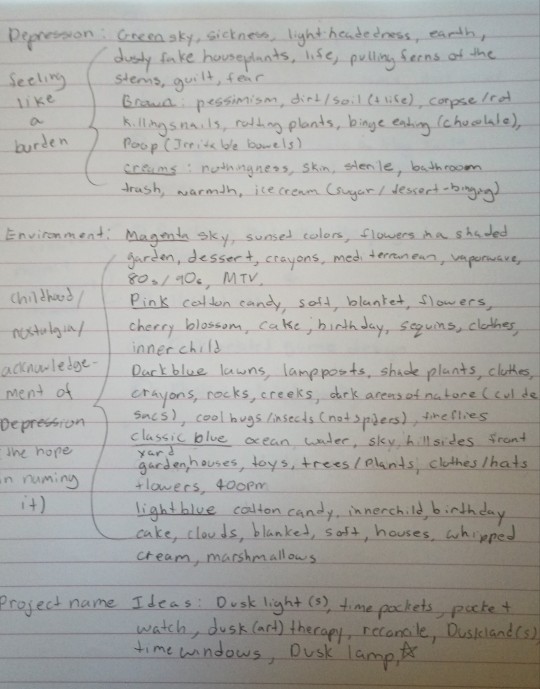 Depression: Green sky, sickness, lightheadedness, earth,
dusty fake houseplants, life, pulling ferns at the
stems, guilt, fear
Brown: pessimism, dirt/soil (+life), corpse/rot
killing snails, rotting plants, binge eating (chocolate),
Poop (Irritable bowels)
creams: nothingness, skin, sterile, bathroom
trash, warmth, ice cream (sugar/dessert-binging)
feeling
like
a
burden
Environment: Magenta sky, sunset colors, flowers in a shaded
garden, dessert, crayons, mediterranean, vaporwave,
80s/90s, MTV,
Pink cotton candy, soft, blanket, flowers,
cherry blossom, cake, birthday, sequins, clothes,
inner child
Dark blue lawns, lampposts, shade plants, clothes,
crayons, rocks, creeks, dark areas of nature (cul de
sacs), cool bugs/insects (not spiders), fireflies
classic blue ocean water, sky, hillsides front
yard
garden, houses, toys, trees/plants, clothes/hats
flowers, 400pm
light blue cotton candy, inner child, birthday
cake, clouds, blanket, soft, houses, whipped
cream, marshmallows
childhood/
nostalgia/
acknowledge-
ment of
Depression
the hope
in naming
it)
Project name Ideas: Dusk light(s), time pockets, pocket
watch, dusk (art) therapy, reconcile, Duskland(s)
time windows, Dusk lamp, ☆